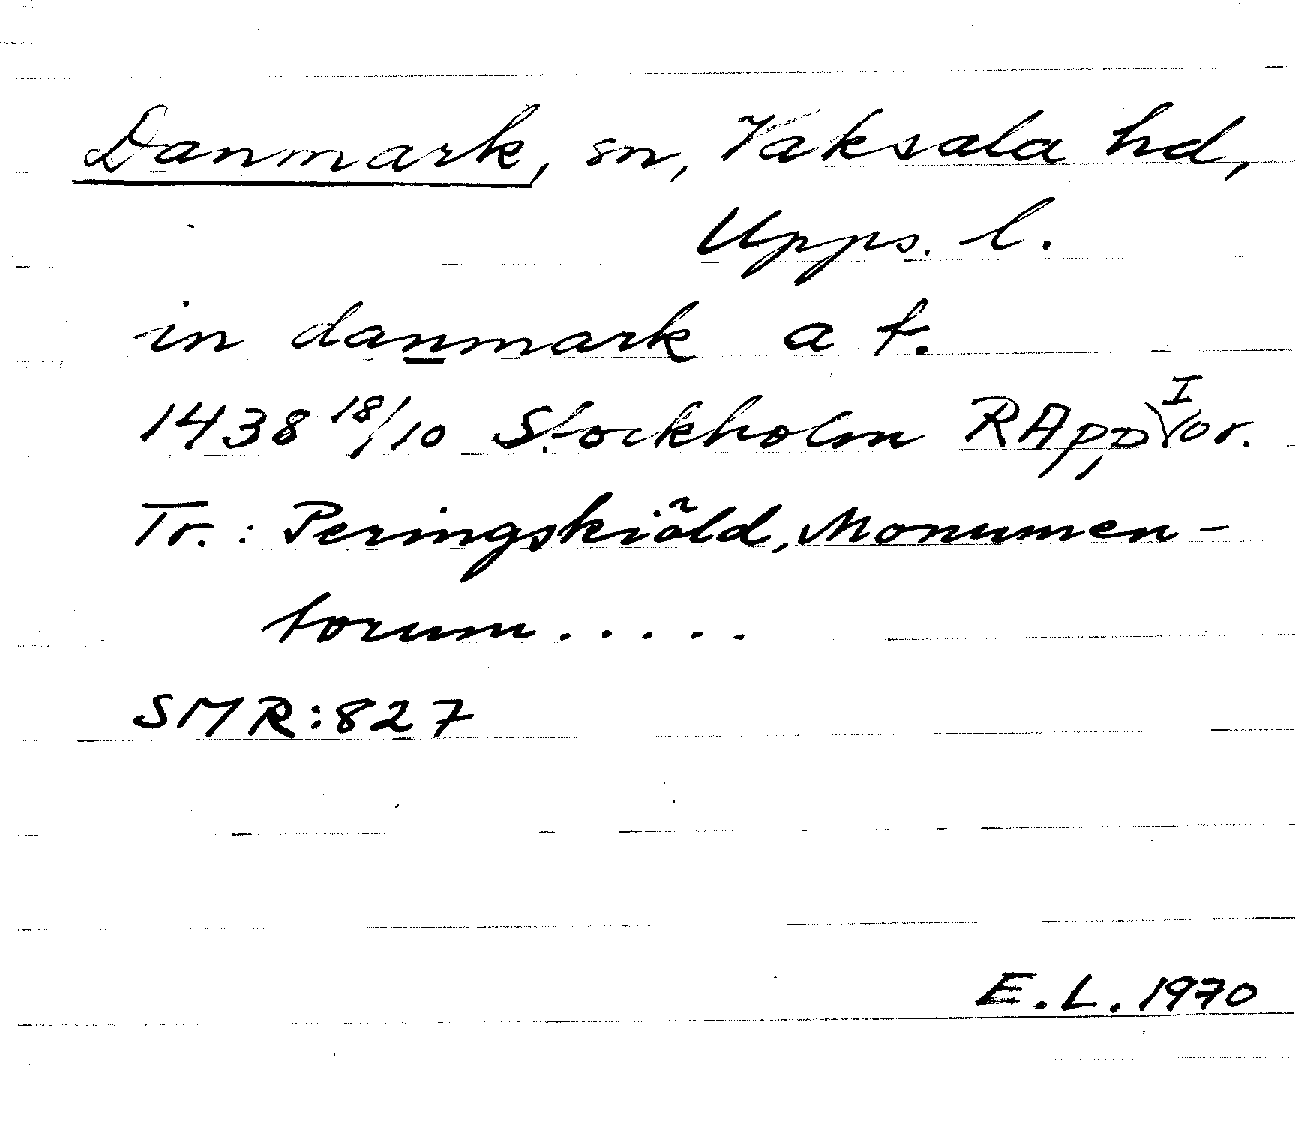 Danmark, sn, Vaksala hd,
Upps. l.
in danmark a t.
1438 18/10 Stockholm RApp I or.
Tr.: Peringskiöld, Monumen-
torum.....
SMR:827
E.L. 1970